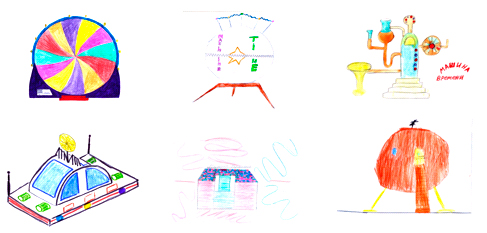 MACHINE
TIME
МАШИНА
ВРЕМЕНИ